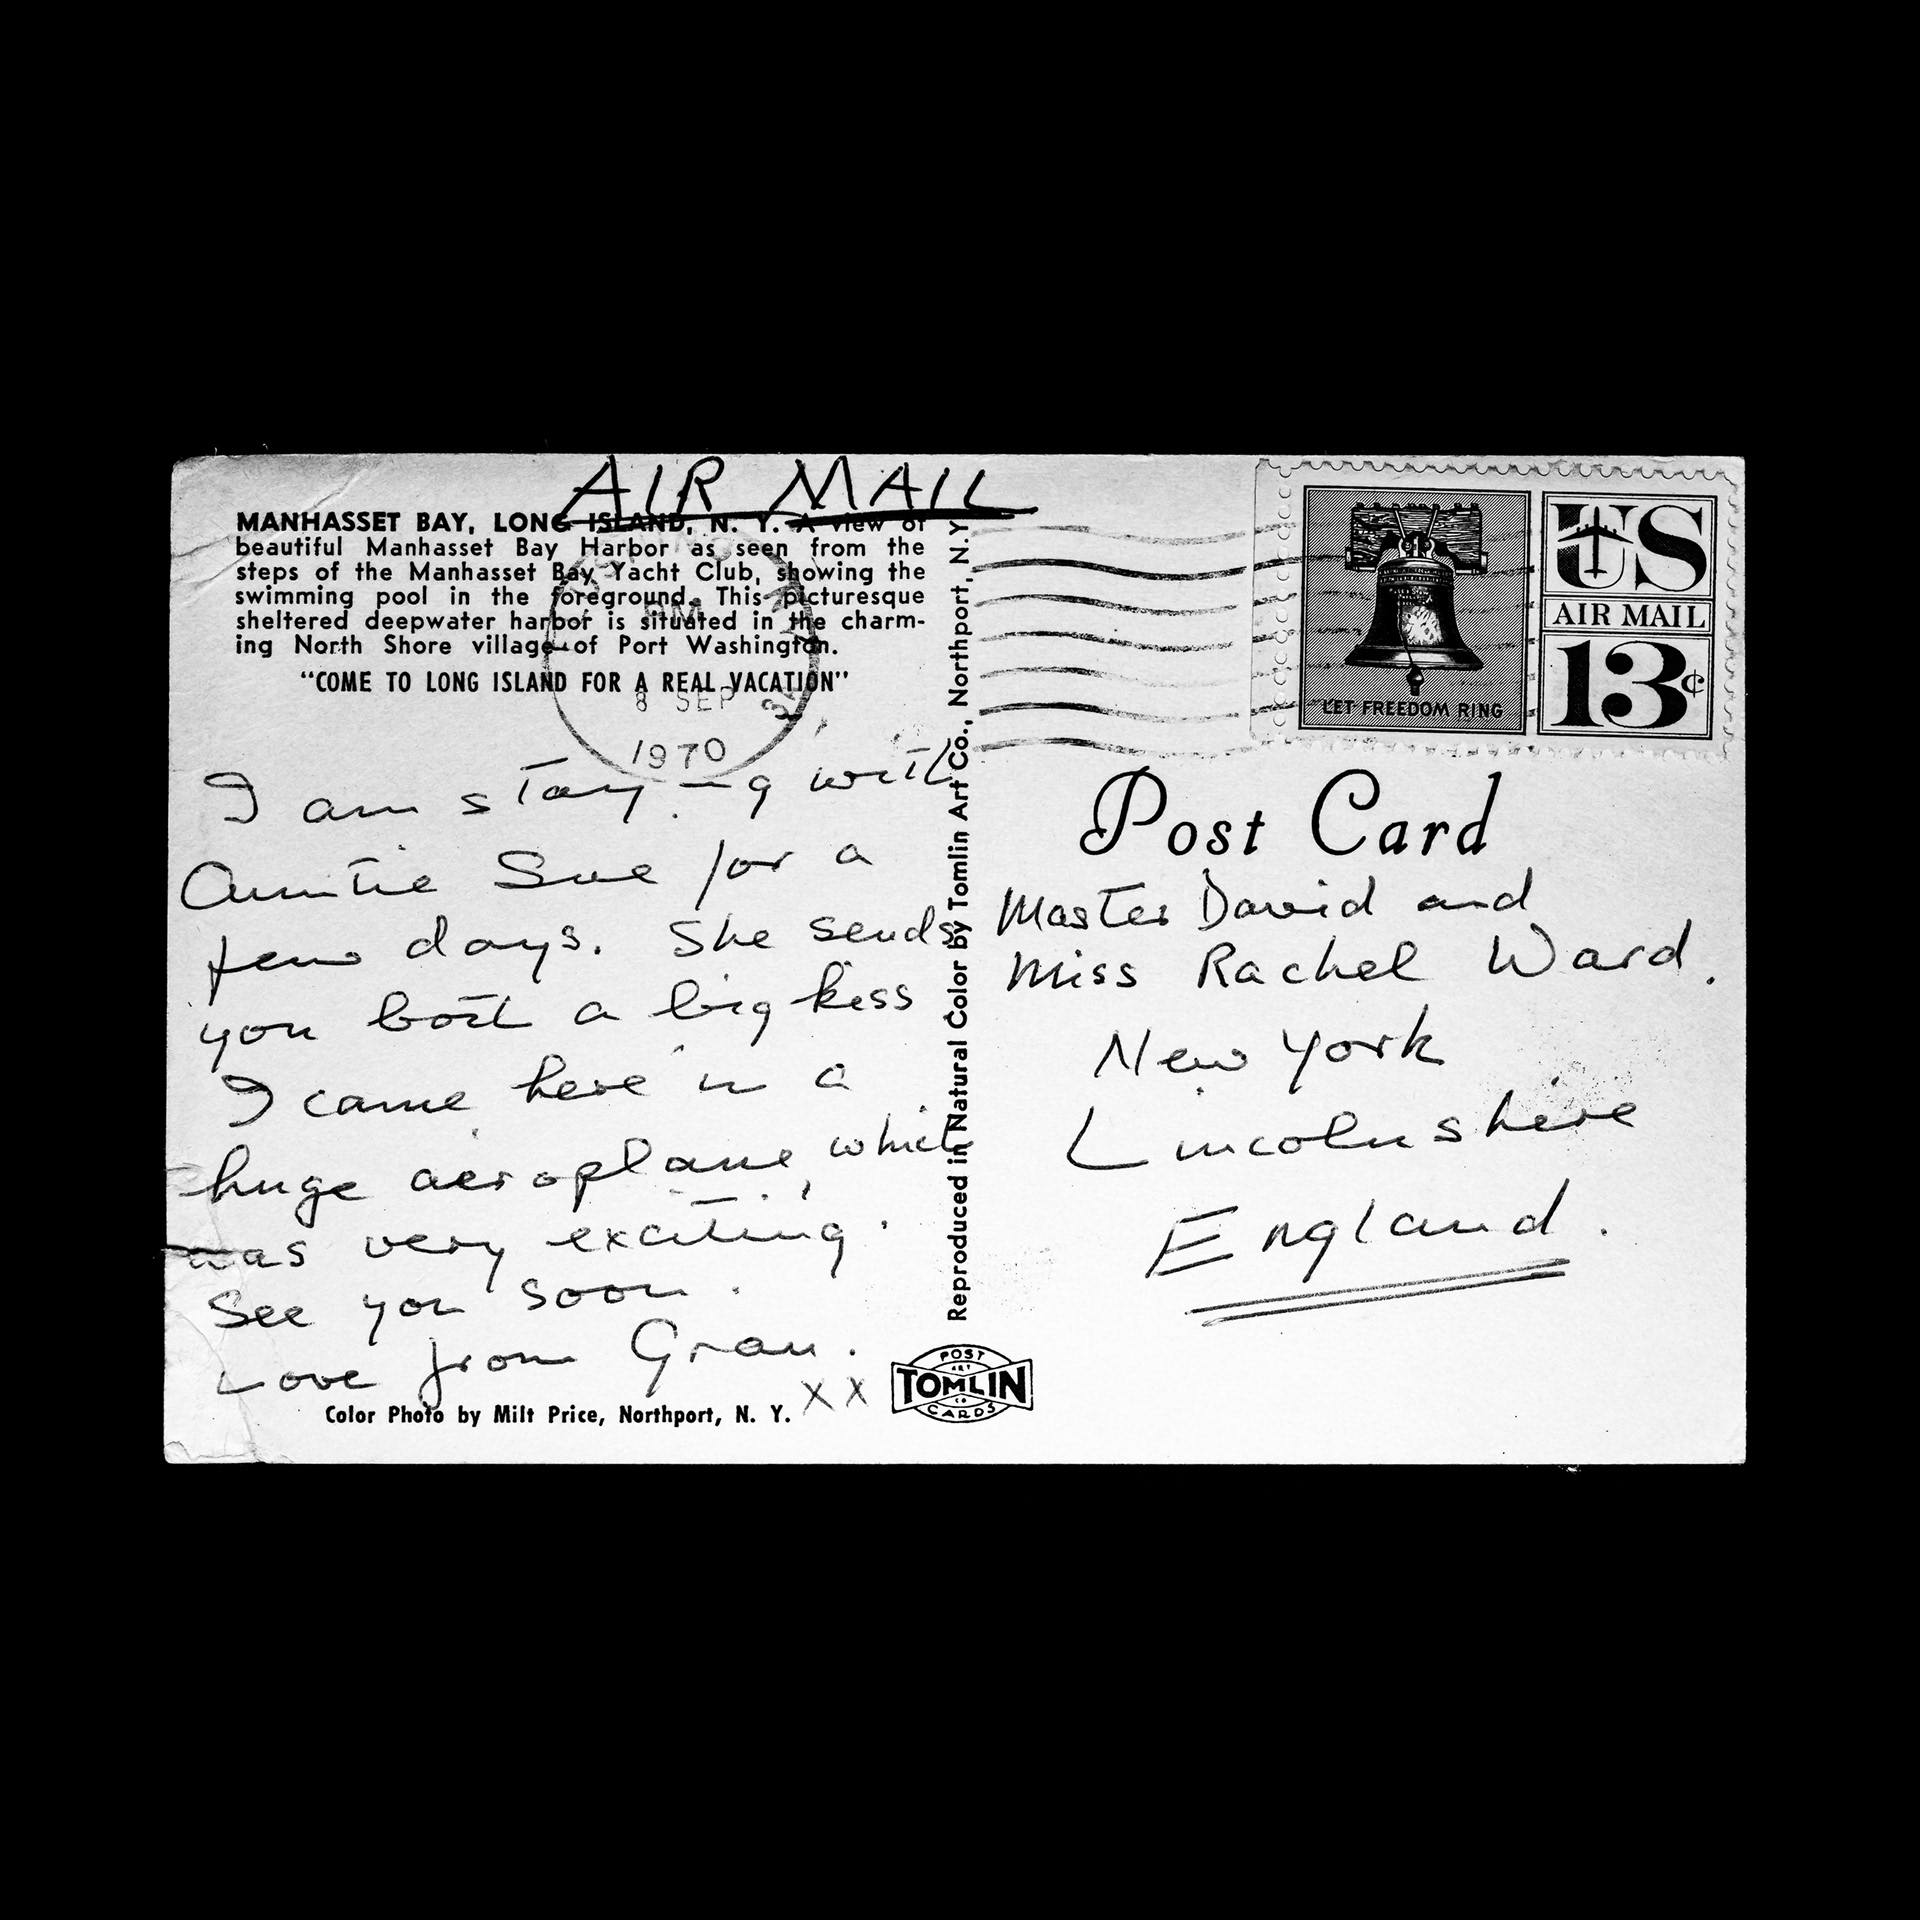 AIR MAIL
MANHASSET BAY, LONG ISLAND, N. Y. A view of
beautiful Manhasset Bay Harbor as seen from the
steps of the Manhasset Bay Yacht Club, showing the
swimming pool in the foreground. This picturesque
sheltered deepwater harbor is situated in the charm-
ing North Shore village of Port Washington.
"COME TO LONG ISLAND FOR A REAL VACATION"
PM
8 SEP
1970
I am staying with
Auntie Sue for a
few days. She sends
you both a big kiss
I came here in a
huge aeroplane, which
was very exciting.
See you soon.
Love from Gran.
X X
Color Photo by Milt Price, Northport, N. Y.
Reproduced in Natural Color by Tomlin Art Co., Northport, N.Y
POST
ART
TOMLIN
CO
CARDS
LET FREEDOM RING
US
AIR MAIL
13¢
Post Card
Master David and
Miss Rachel Ward.
New York
Lincolnshire
England.